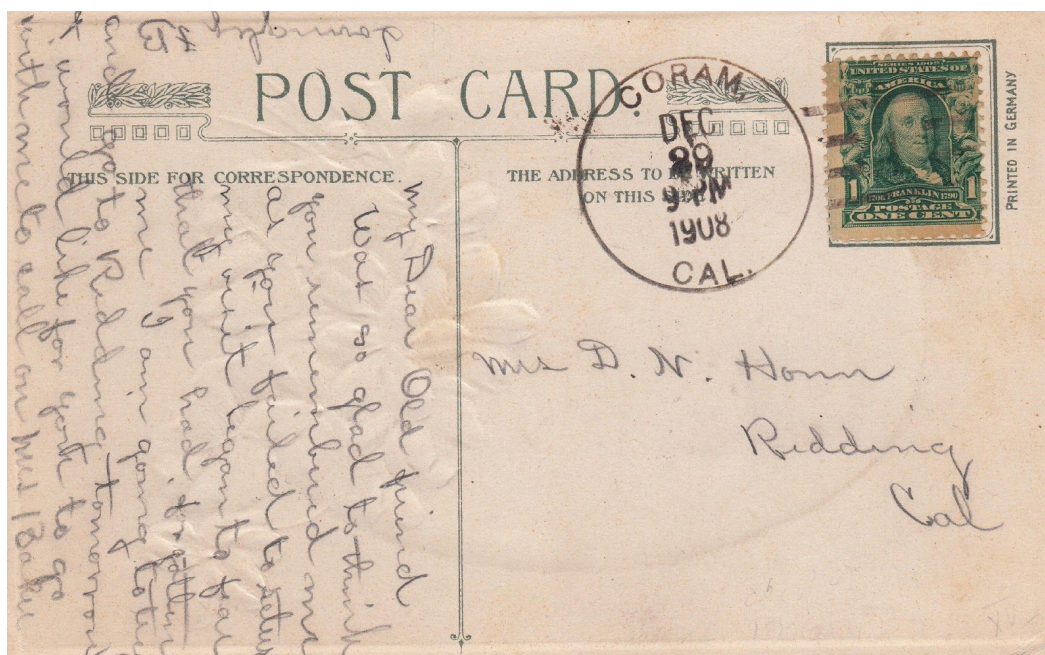 POST CARD.
THIS SIDE FOR CORRESPONDENCE.
THE ADDRESS TO BE WRITTEN
ON THIS
CORAM,
DEC
29
9 PM
1908
CAL.
SERIES 1902
UNITED STATES OF
AMERICA
1 1
FRANKLIN 1790
POSTAGE
ONE CENT
PRINTED IN GERMANY
Mrs D. N. Honn
Redding
Cal
My Dear Old friend
Was so glad to think
you remembered me
as you failed to return
my visit began to fear
that you had forgotten
me I am going to
and go to Redding tomorrow
& would like for you to go
with me to call on Mrs Baker